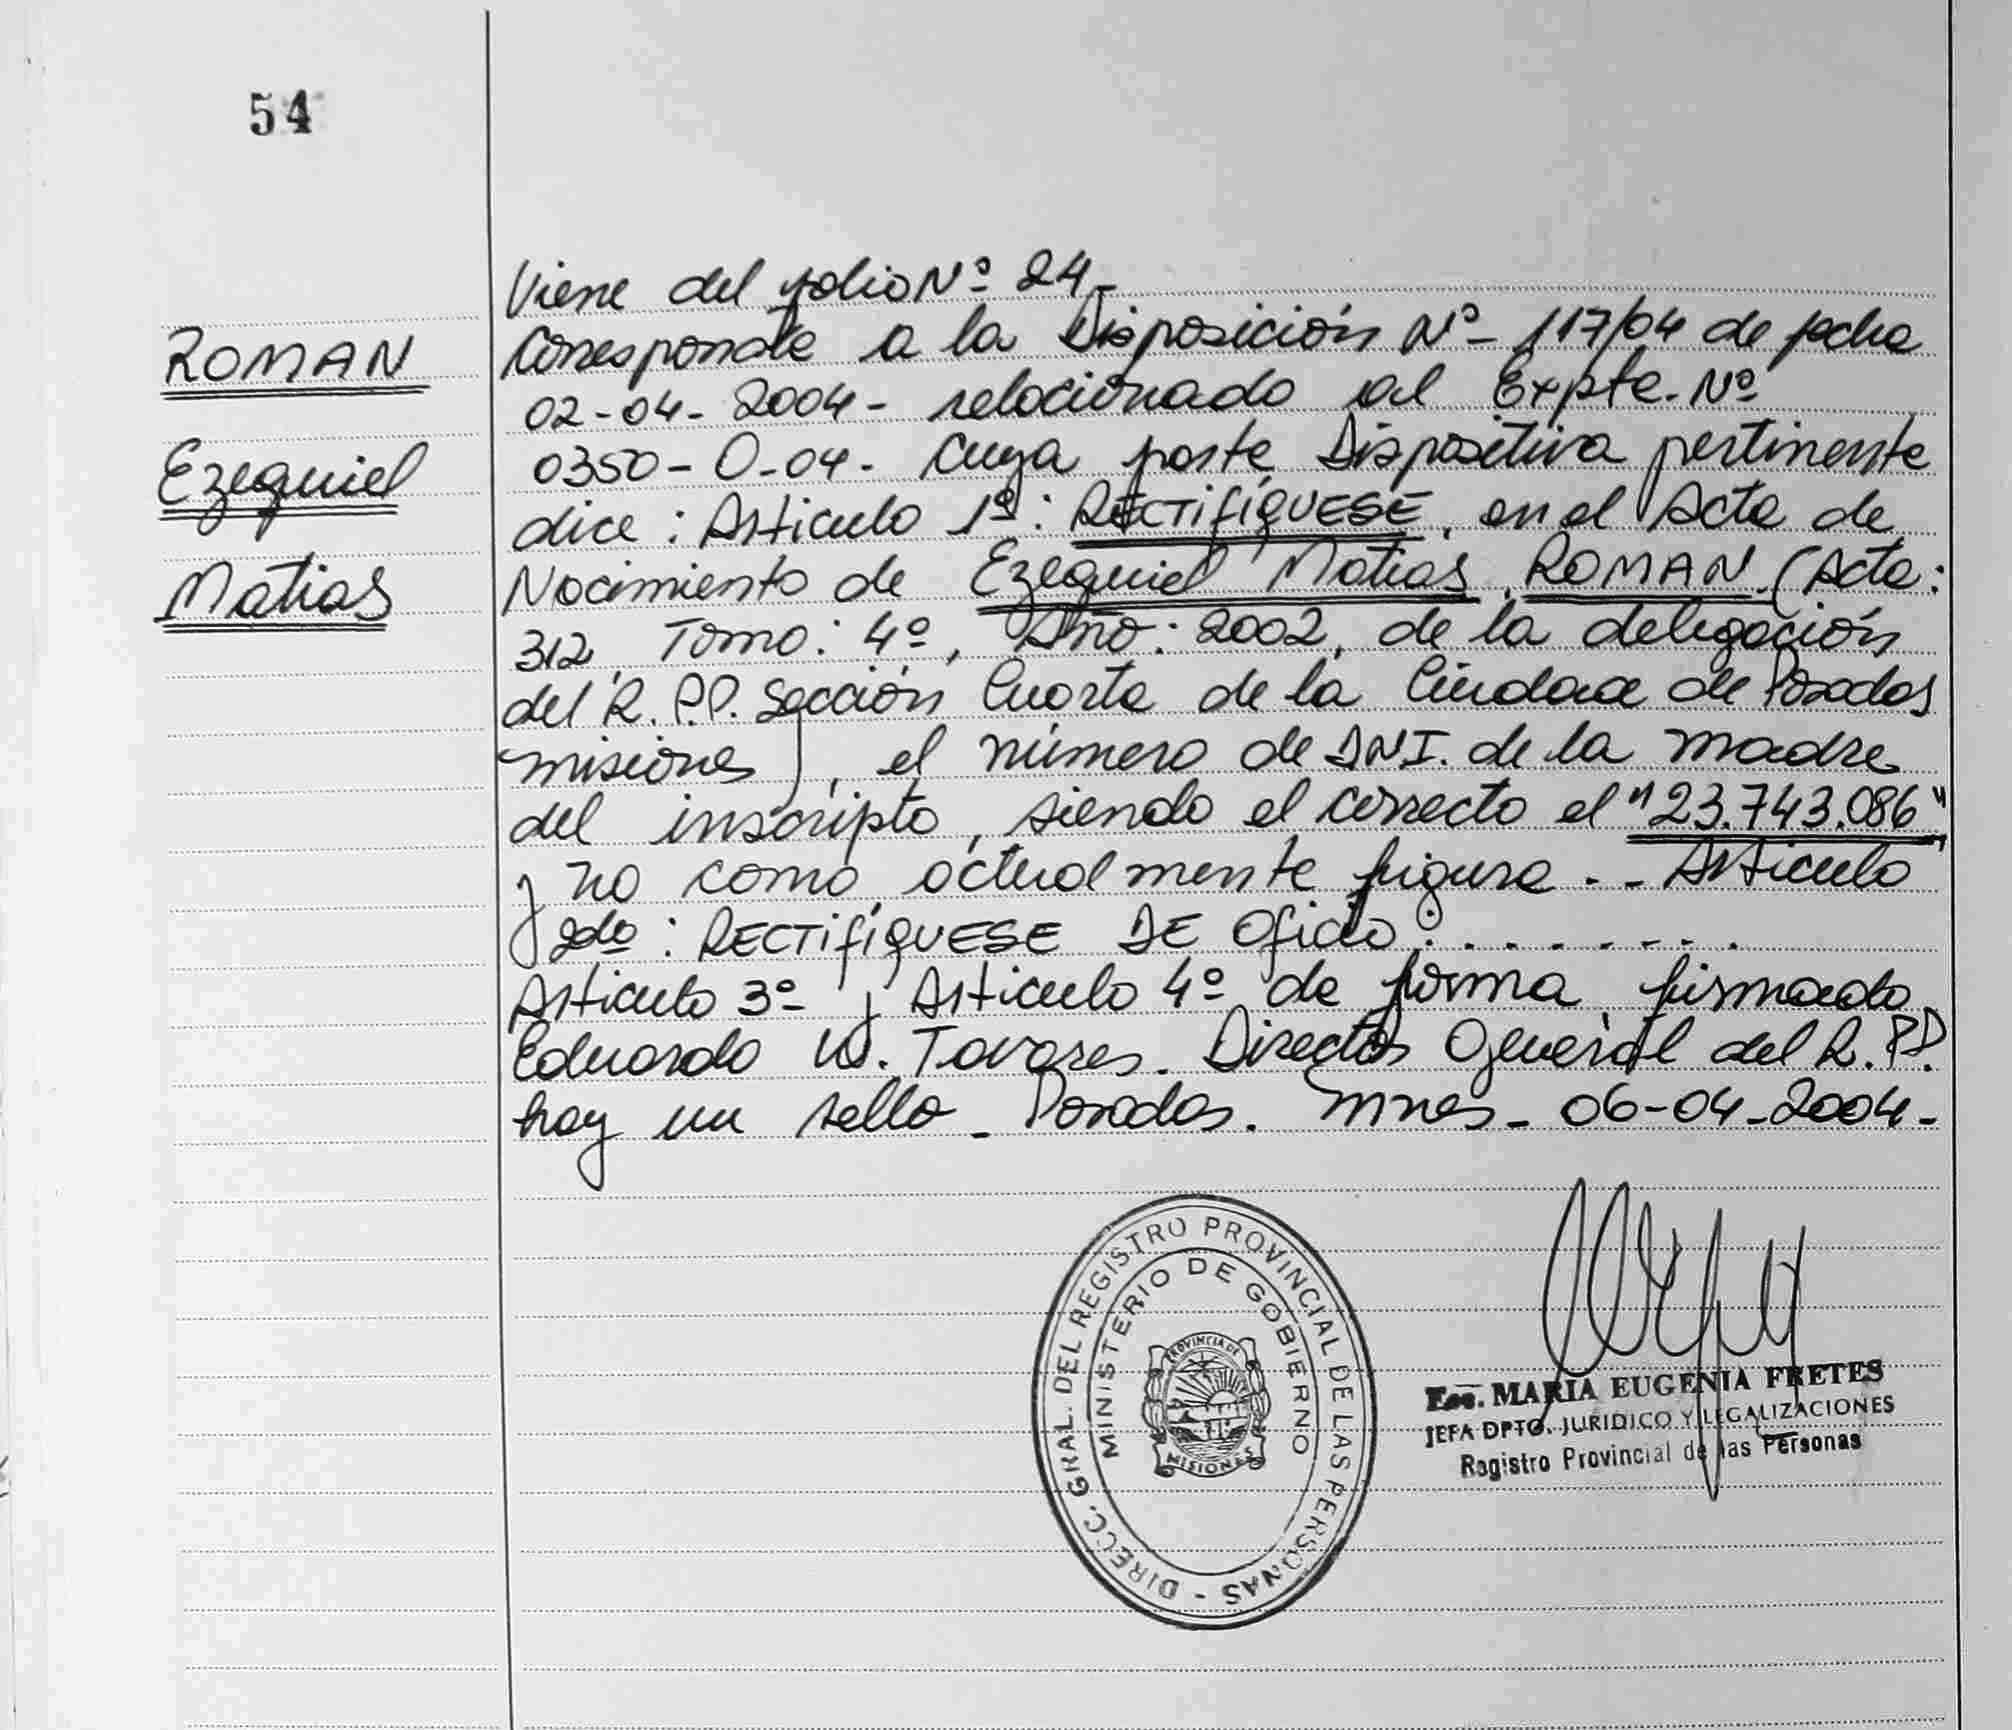 54
ROMAN
Ezequiel
Matias
Viene del folio Nº 24-
Corresponde a la Disposición Nº- 117/04 de fecha
02-04-2004- relacionado al Expte. Nº
0350-O-04. Cuya parte Dispositiva pertinente
dice: Articulo 1º: RECTIFÍQUESE, en el Acta de
Nacimiento de Ezequiel Matias, ROMAN. (Acta:
312, Tomo: 4º, Año: 2002, de la delegación
del R.P.P. Sección Cuarta de la Ciudad de Posadas
misiones), el número de DNI. de la madre
del inscripto, siendo el correcto el "23.743.086"
y no como actualmente figura.- Articulo
2do: RECTIFÍQUESE DE Oficio: . . . . . . . .
Articulo 3º y Articulo 4º de forma, firmado
Eduardo W. Tavares. Director General del R.PP.
hay un sello - Posadas. Mnes- 06-04-2004-
DIRECC. GRAL. DEL REGISTRO PROVINCIAL DE LAS PERSONAS -
MINISTERIO DE GOBIERNO
PROVINCIA DE
MISIONES
Esc. MARIA EUGENIA FRETES
JEFA DPTO. JURIDICO Y LEGALIZACIONES
Registro Provincial de las Personas